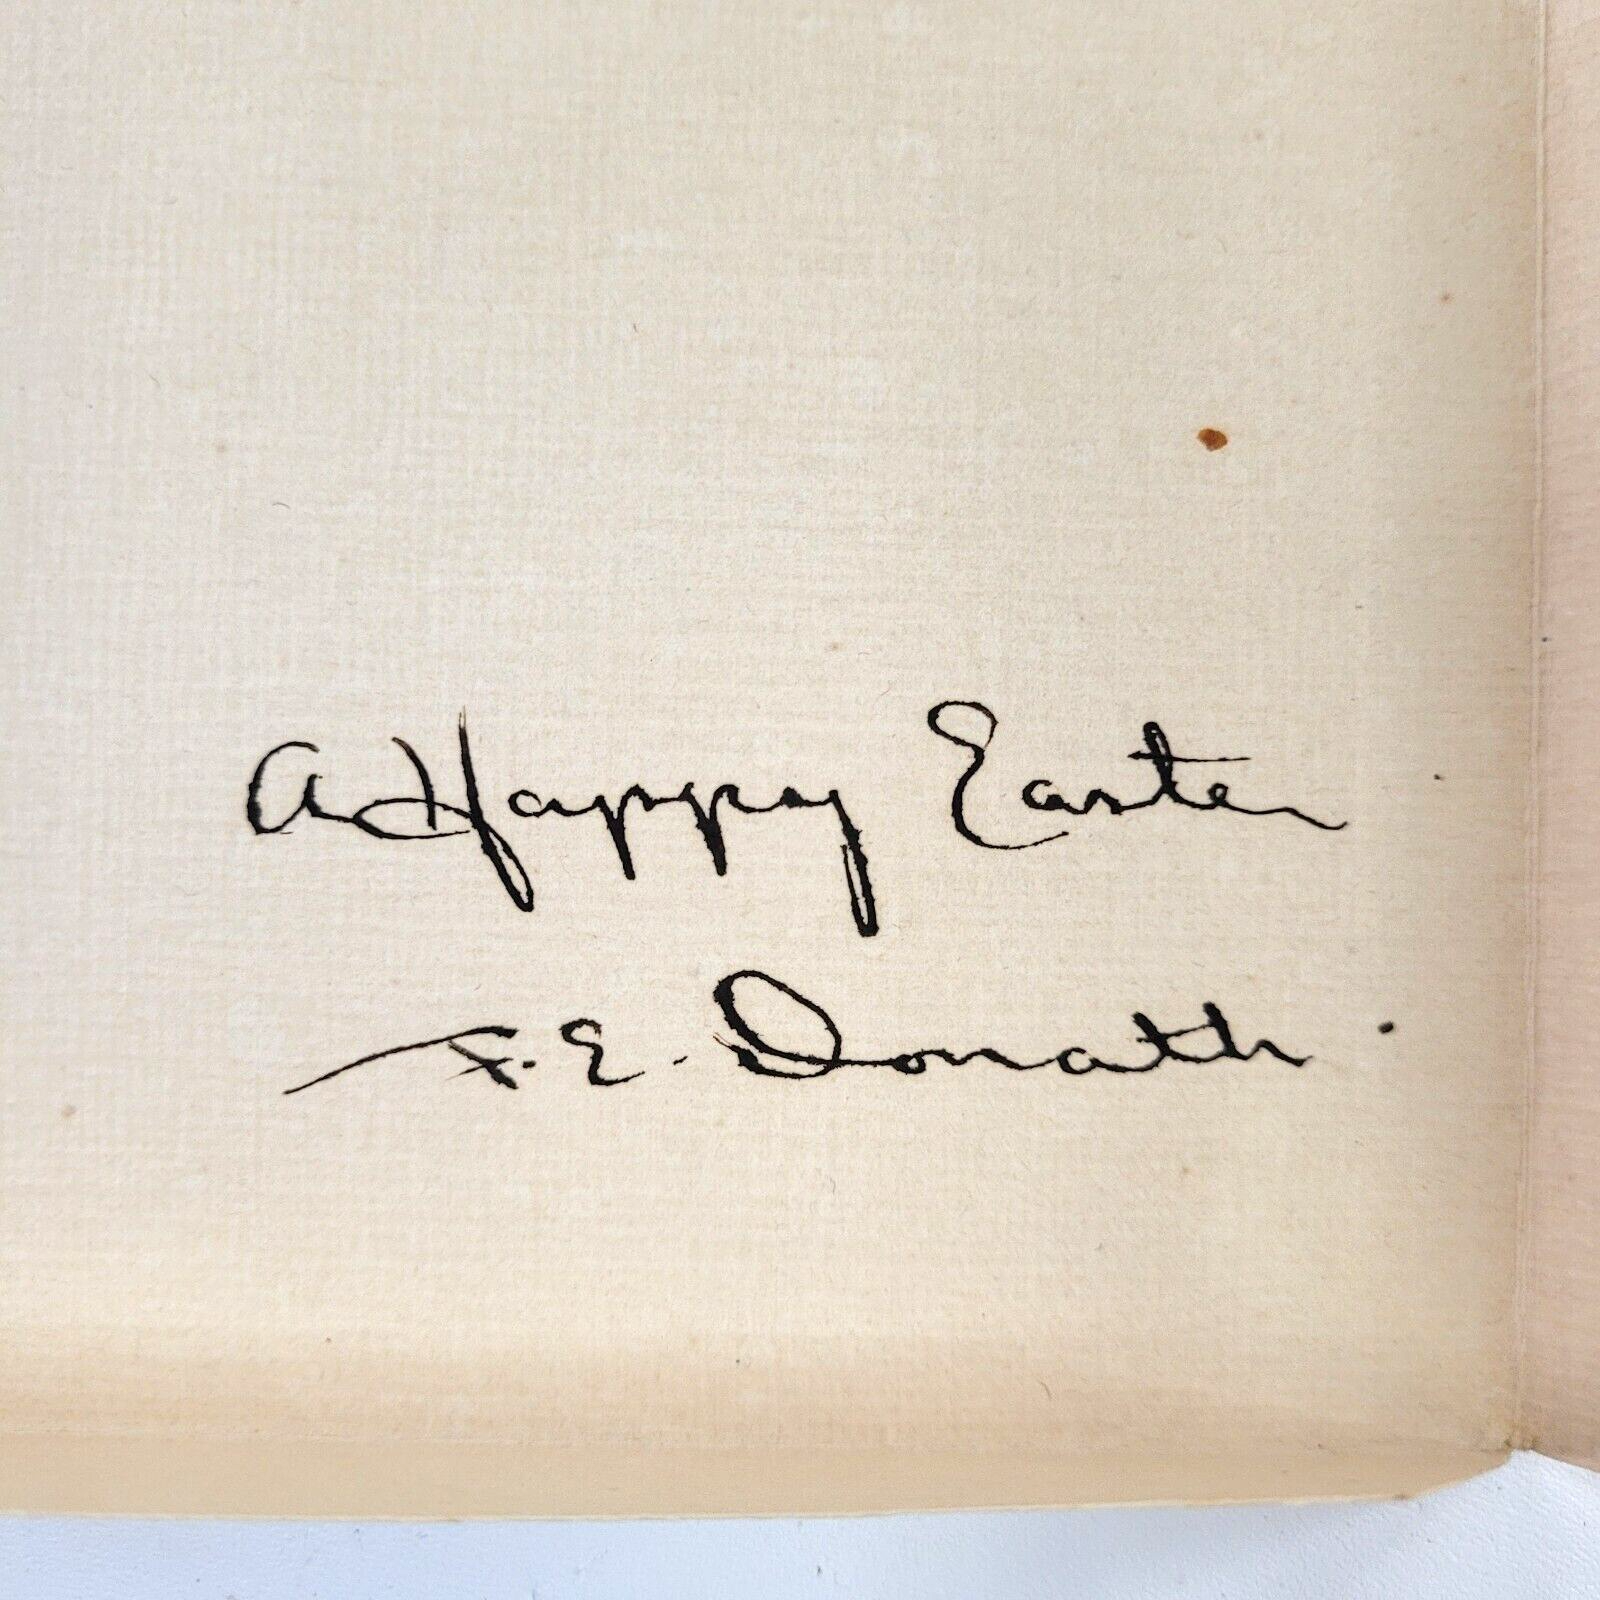 A Happy Easter
F. E. Donath.